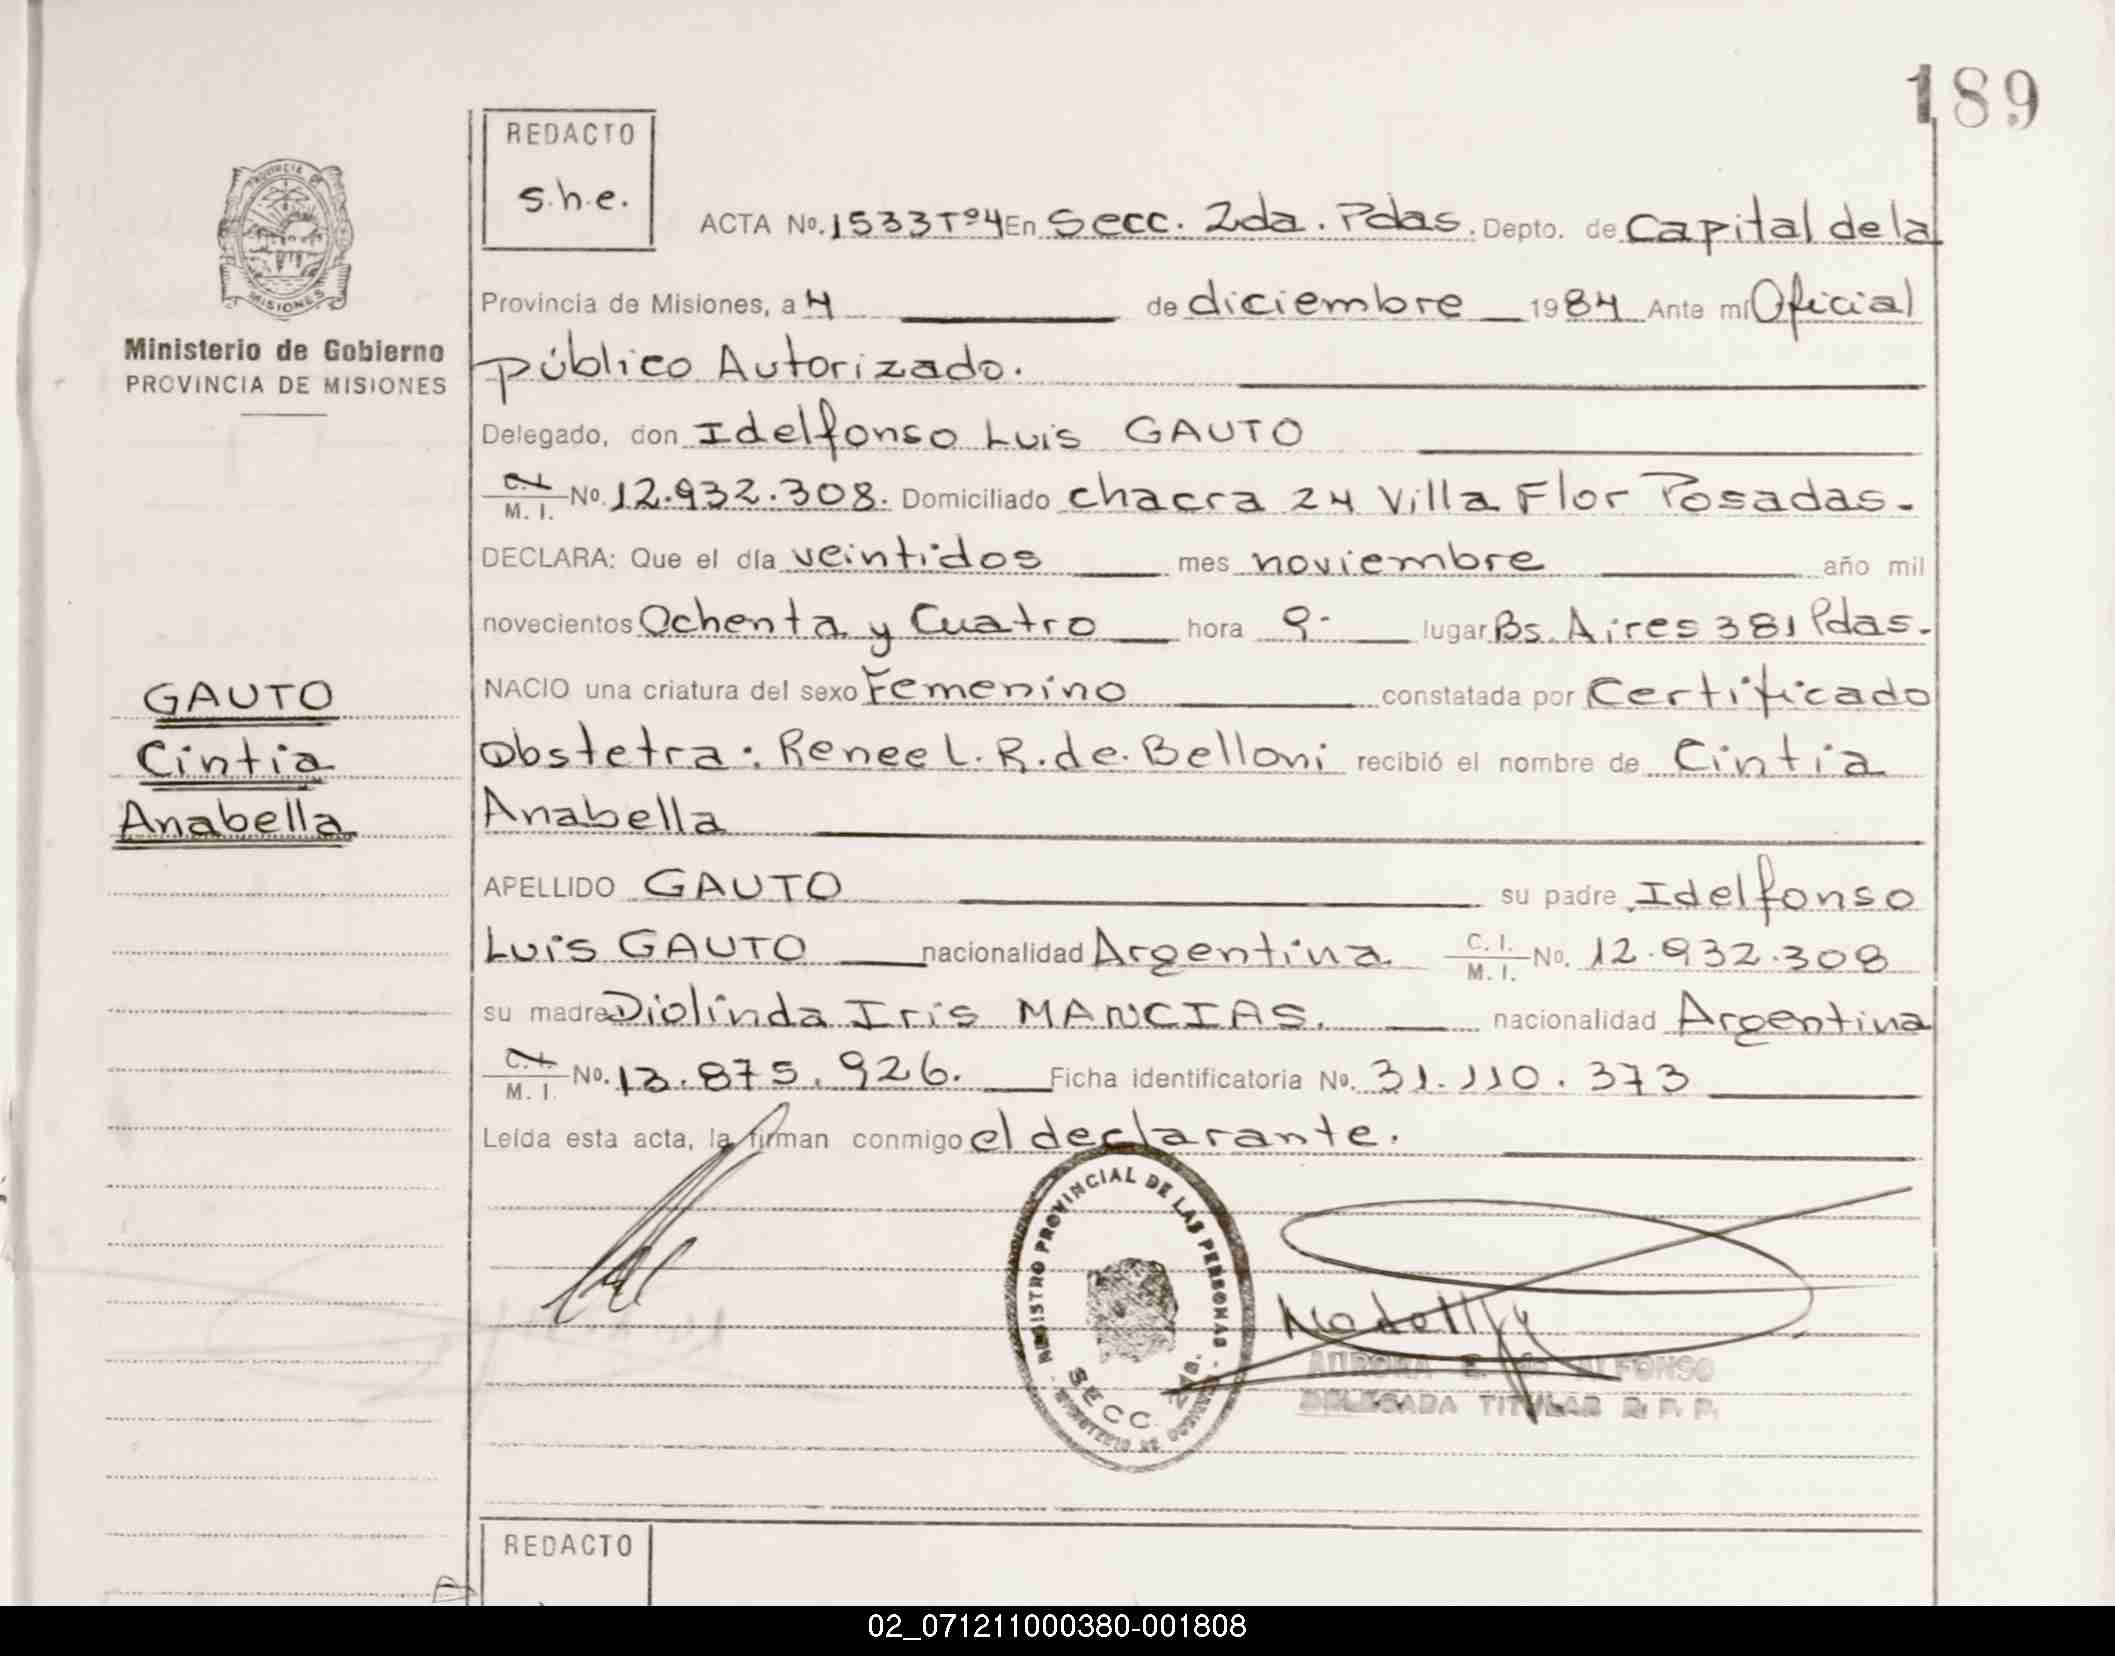 189
REDACTO
s.h.e.
ACTA No. 1533 Tº4 En Secc. 2da. Pdas. Depto. de Capital de la
Provincia de Misiones, a 4 de diciembre 1984 Ante mí Oficial
público Autorizado.
Delegado, don Idelfonso Luis GAUTO
C.I. M. I. No. 12.932.308. Domiciliado chacra 24 Villa Flor Posadas.
DECLARA: Que el día veintidos mes noviembre año mil
novecientos Ochenta y Cuatro hora 9- lugar Bs. Aires 381 Pdas.
NACIO una criatura del sexo Femenino constatada por Certificado
Obstetra: Renee L. R. de. Belloni recibió el nombre de Cintia
Anabella
APELLIDO GAUTO su padre Idelfonso
Luis GAUTO nacionalidad Argentina C. I. M. I. No. 12.932.308
su madre Diolinda Iris MANCIAS. nacionalidad Argentina
C.I. M. I. No. 13.875.926. Ficha identificatoria No. 31.110.373
Leída esta acta, la firman conmigo el declarante.
PROVINCIA DE
MISIONES
Ministerio de Gobierno
PROVINCIA DE MISIONES
GAUTO
Cintia
Anabella
REGISTRO PROVINCIAL DE LAS PERSONAS
SECC.
MINISTERIO DE GOBIERNO
AURORA E. ALFONSO
DELEGADA TITULAR R. P. P.
REDACTO
02_071211000380-001808